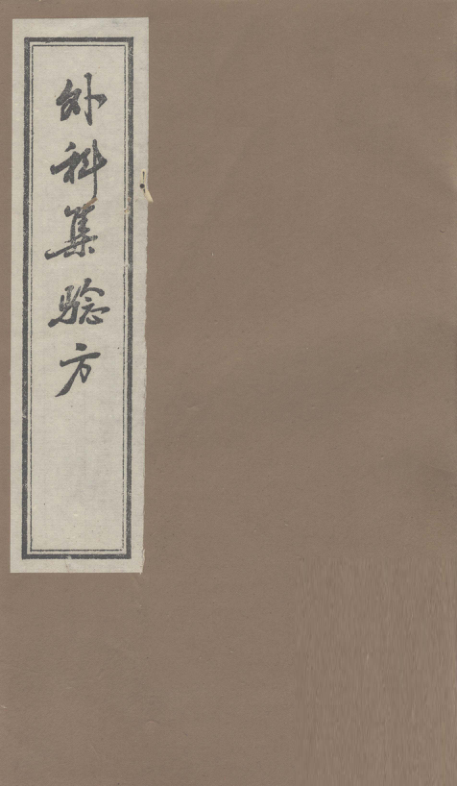 外科集騐方